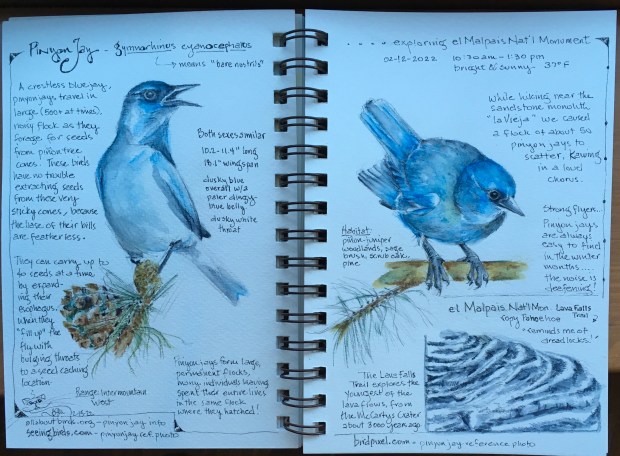 Pinyon Jay - Gymnorhinus cyanocephalus
means "bare nostrils"
A crestless blue jay,
pinyon jays travel in
large (500+ at times),
noisy flock as they
forage for seeds
from piñon tree
cones! These birds
have no trouble
extracting seeds
from these very
sticky cones, because
the base of their bills
are featherless.
They can carry up to
40 seeds at a time,
by expand-
ing their
esophagus.
When they
"fill up" the
fly with
bulging throats
to a seed caching
location.
Range: Intermountain
West
allaboutbirds.org - pinyon jay info
seeingbirds.com - pinyon jay ref. photo
Both sexes similar
10.2-11.4" long
18.1" wingspan
dusky blue
overall w/a
paler dingy
blue belly
dusky white
throat
Pinyon jays form large,
permanent flocks,
many individuals having
spent their entire lives
in the same flock
where they hatched!
.... exploring el Malpais Nat'l Monument
02-12-2022 10:30am - 1:30 pm
bright & sunny - 37°F
While hiking near the
sandstone monolith
"La Vieja" we caused
a flock of about 50
pinyon jays to
scatter, kawing
in a loud
chorus.
Strong flyers..
Pinyon jays
are always
easy to find
in the winter
months....
the noise is
deafening!
Habitat
piñon-juniper
woodlands, sage
brush, scrub oak,
pine
el Malpais Nat'l Mon - Lava Falls
Trail
Ropy Pahoehoe
"reminds me of
dreadlocks!"
The Lava Falls
Trail explores the
youngest of the
lava flows, from
the McCartys Crater
about 3000 years ago.
birdpixel.com - pinyon jay reference photo